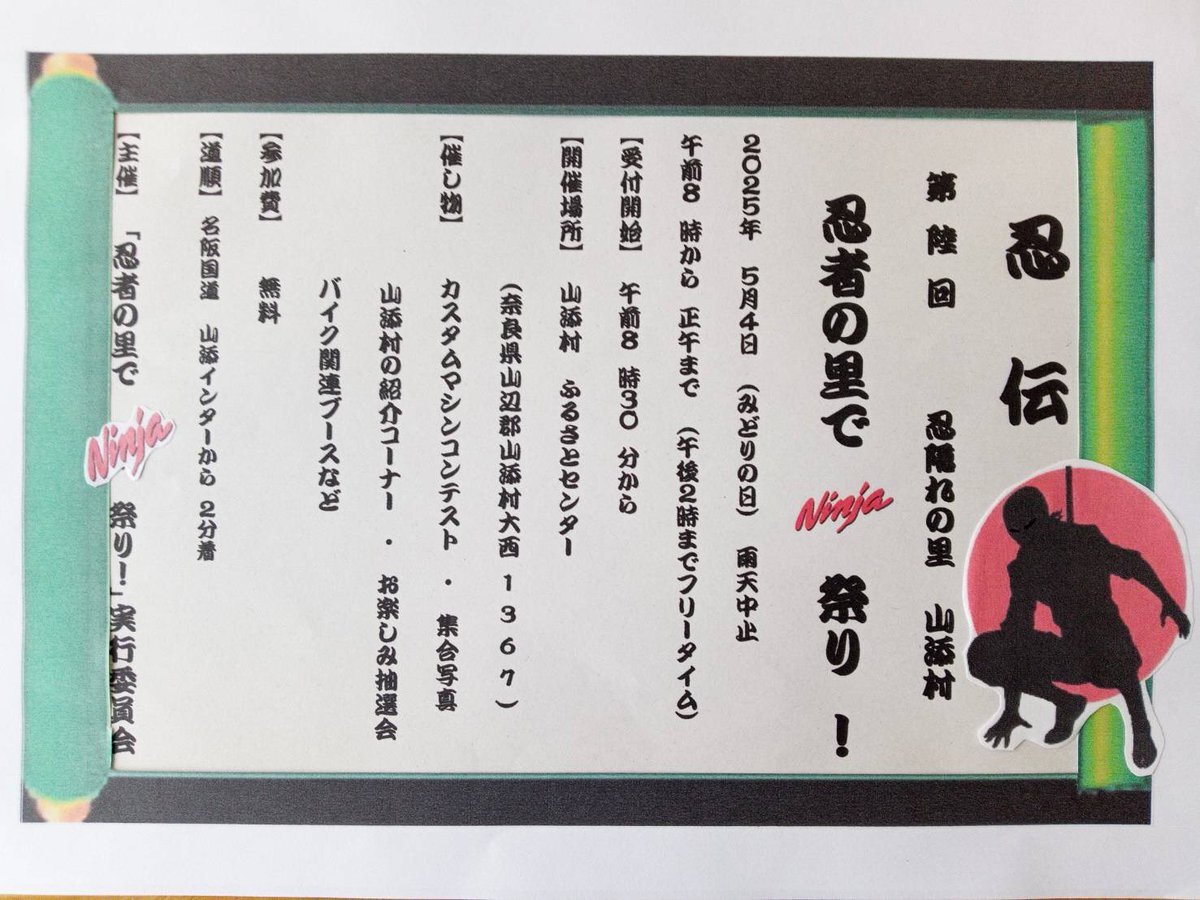 忍伝
第陸回 忍隠れの里 山添村
忍者の里で Ninja 祭り！
2025年 5月4日 (みどりの日) 雨天中止
午前8時から 正午まで (午後2時までフリータイム)
【受付開始】 午前8時30分から
【開催場所】 山添村 ふるさとセンター
(奈良県山辺郡山添村大西1367)
【催し物】 カスタムマシンコンテスト ・ 集合写真
山添村の紹介コーナー ・ お楽しみ抽選会
バイク関連ブースなど
【参加費】 無料
【道順】 名阪国道 山添インターから 2分着
【主催】 「忍者の里で Ninja 祭り！」実行委員会